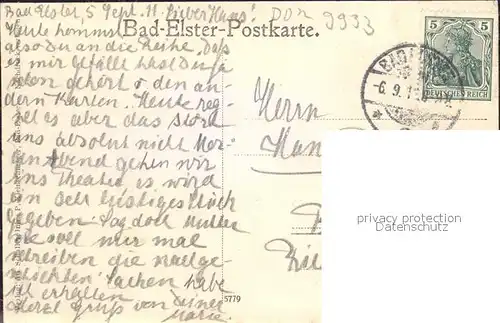 Bad Elster, 5 Sept. 11. Lieber Hans!
DON 9933
Heute kommst
also Du an die Reihe. Daß
es mir gefällt hast Du ja
schon gehört v den an-
dern Karten. Heute reg-
net es aber das stört
uns absolut nicht
Abend gehen wir
ins Theater es wird
ein sehr lustiges Stück
gegeben. Sag doch Mutter
sie soll mir mal
schreiben die
Sachen habe
ich erhalten
Herzl Gruß von Deiner
Marie.
Bad-Elster-Postkarte.
5
5
DEUTSCHES REICH
BAD ELSTER
-6. 9. 11
Herrn
privacy protection
Datenschutz
5779